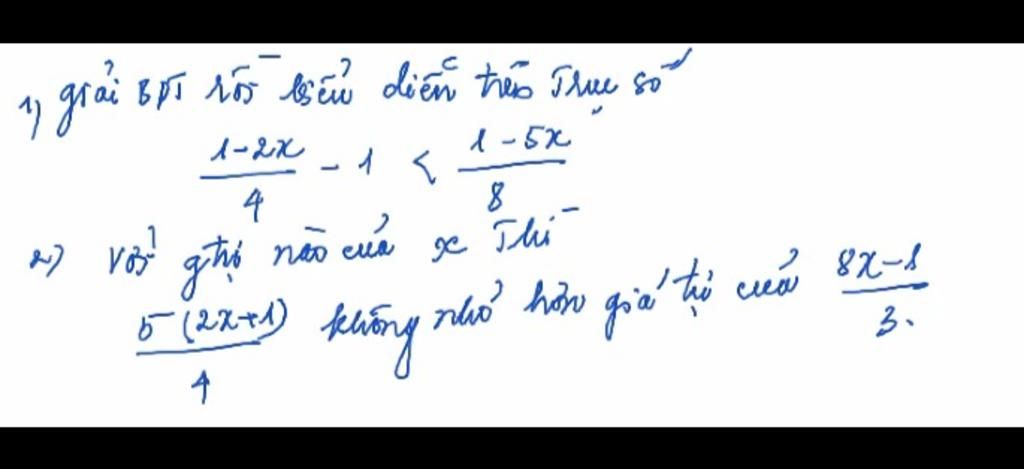 1) giải BPT rồi biểu diễn trên Trục số
(1-2x)/4 - 1 < (1-5x)/8
2) Với gtrị nào của x Thì
5(2x+1)/4 không nhỏ hơn giá trị của (8x-1)/3.